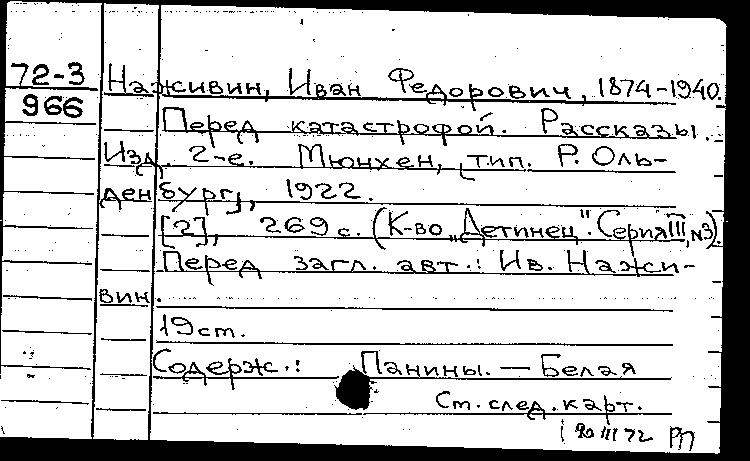 72-3 Наживин, Иван Федорович, 1874-1940.
966
Перед катастрофой. Рассказы.
Изд. 2-е. Мюнхен, [тип. Р. Оль-
денбург], 1922.
[2], 269 с. (К-во „Детинец". Серия III, №3).
Перед загл. авт.: Ив. Нажи-
вин.
19 ст.
Содерж.: Панины. — Белая
Ст. след. карт.
20 III 72 РП